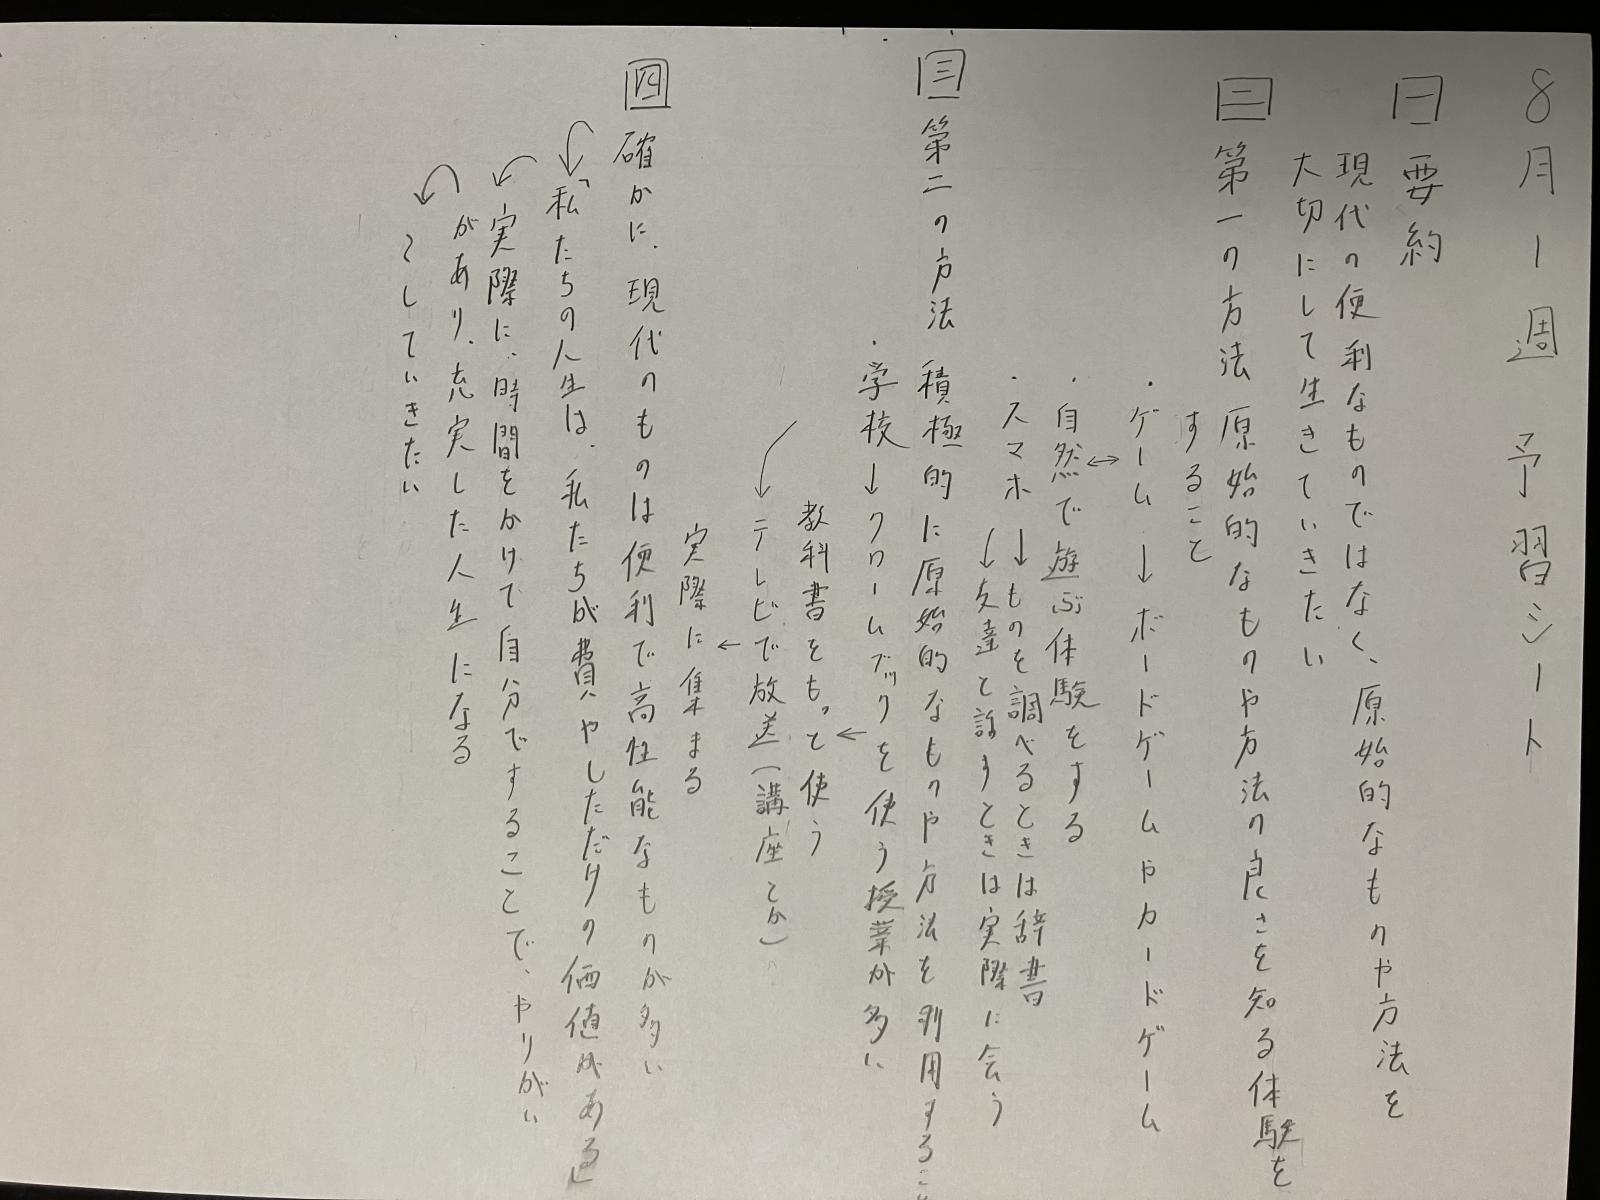 8月1週 予習シート
一 要約
現代の便利なものではなく、原始的なものや方法を
大切にして生きていきたい
二 第一の方法 原始的なものや方法の良さを知る体験を
すること
・ゲーム→ボードゲームやカードゲーム
↔
・自然で遊ぶ体験をする
・スマホ→ものを調べるときは辞書
→友達と話すときは実際に会う
三 第二の方法 積極的に原始的なものや方法を利用すること
・学校→クロームブックを使う授業が多い
←
教科書をもって使う
→テレビで放送(講座とか)
←
実際に集まる
四 確かに、現代のものは便利で高性能なものが多い
「私たちの人生は、私たちが費やしただけの価値がある」
実際に、時間をかけて自分ですることで、やりがい
があり、充実した人生になる
〜していきたい